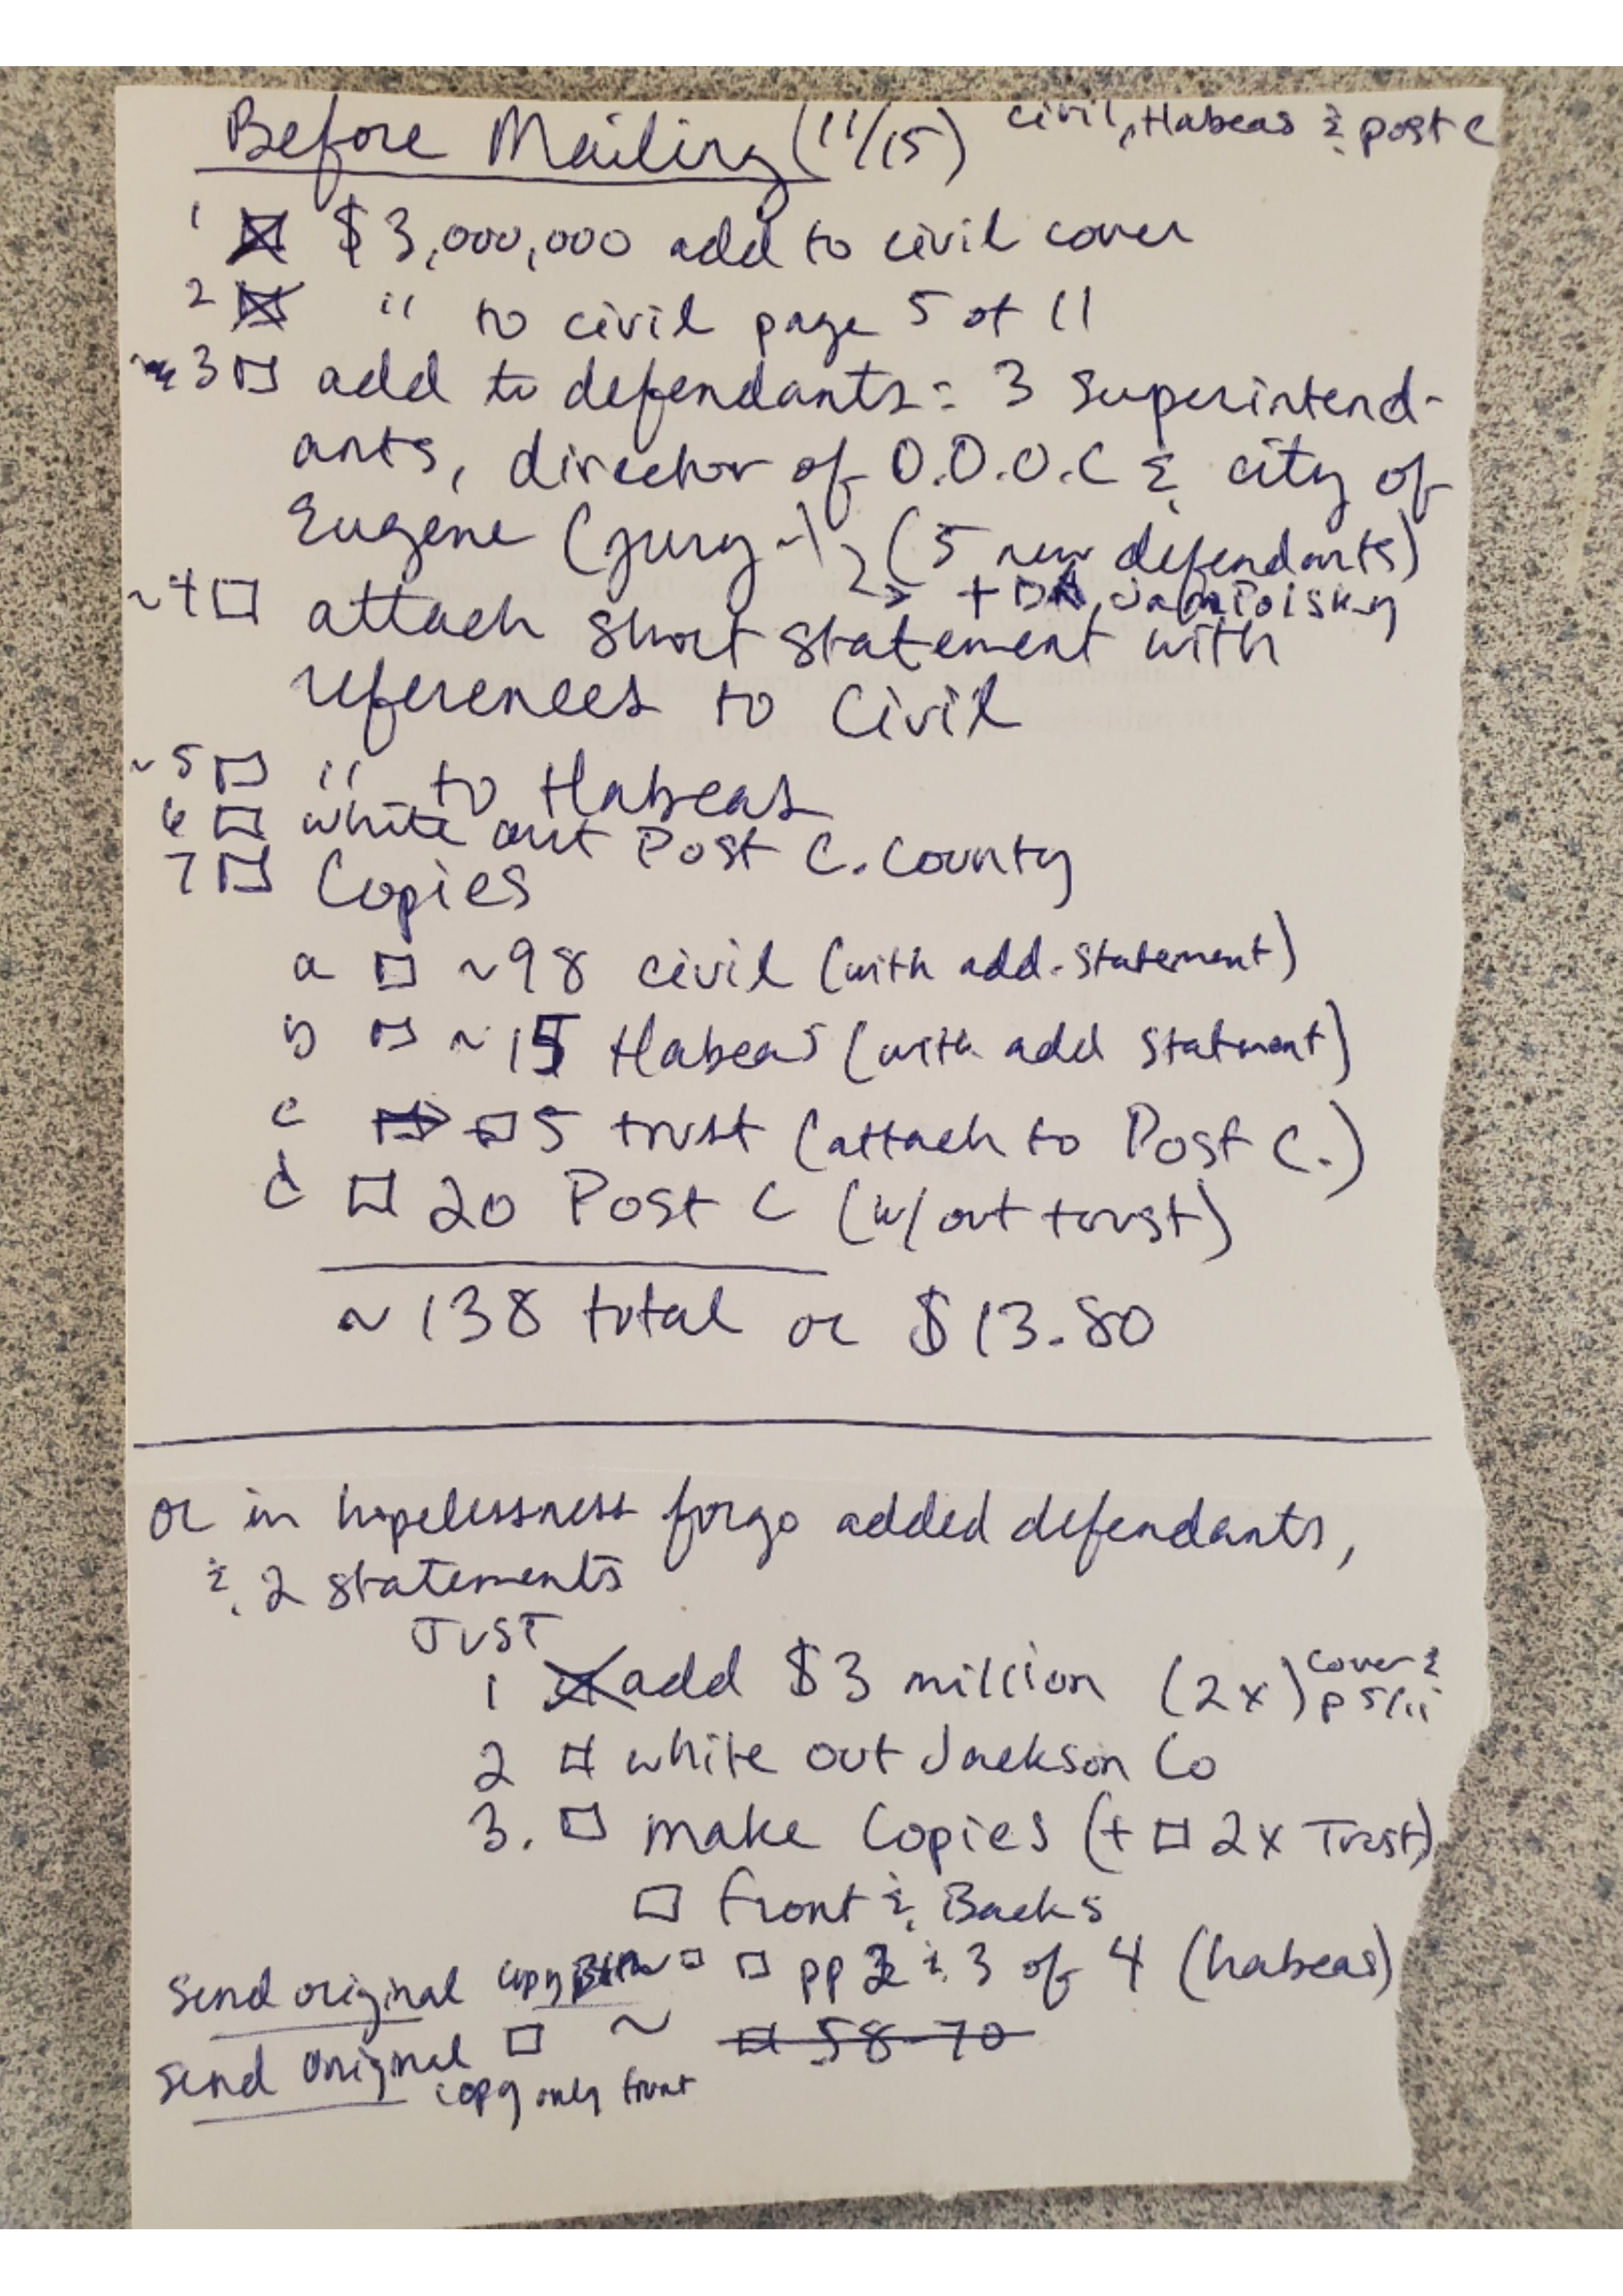 Before Mailing (11/15) civil, Habeas & post C
1 ☒ $3,000,000 add to civil cover
2 ☒ " to civil page 5 of 11
3 □ add to defendants: 3 Superintend-
ants, director of O.D.O.C & city of
Eugene (jury ~) (5 new defendants)
→ + DA
~4 □ attach short statement with
references to Civil
~5 □ " to Habeas
6 □ white out Post C. County
7 □ Copies
a □ ~98 civil (with add. statement)
b □ ~15 Habeas (with add statment)
c □ 5 trust (attach to Post C.)
d □ 20 Post C (w/out trust)
~138 total or $13.80
or in hopelessness forgo added defendants,
& 2 statements
JUST
1 ☒ add $3 million (2x) cover & p 5/11
2 □ white out Jackson Co
3. □ make Copies (+ □ 2x Trust)
□ front & Backs
Send original copy □ □ pp 2 & 3 of 4 (habeas)
Send original □ ~ □ 58-70
copy only front